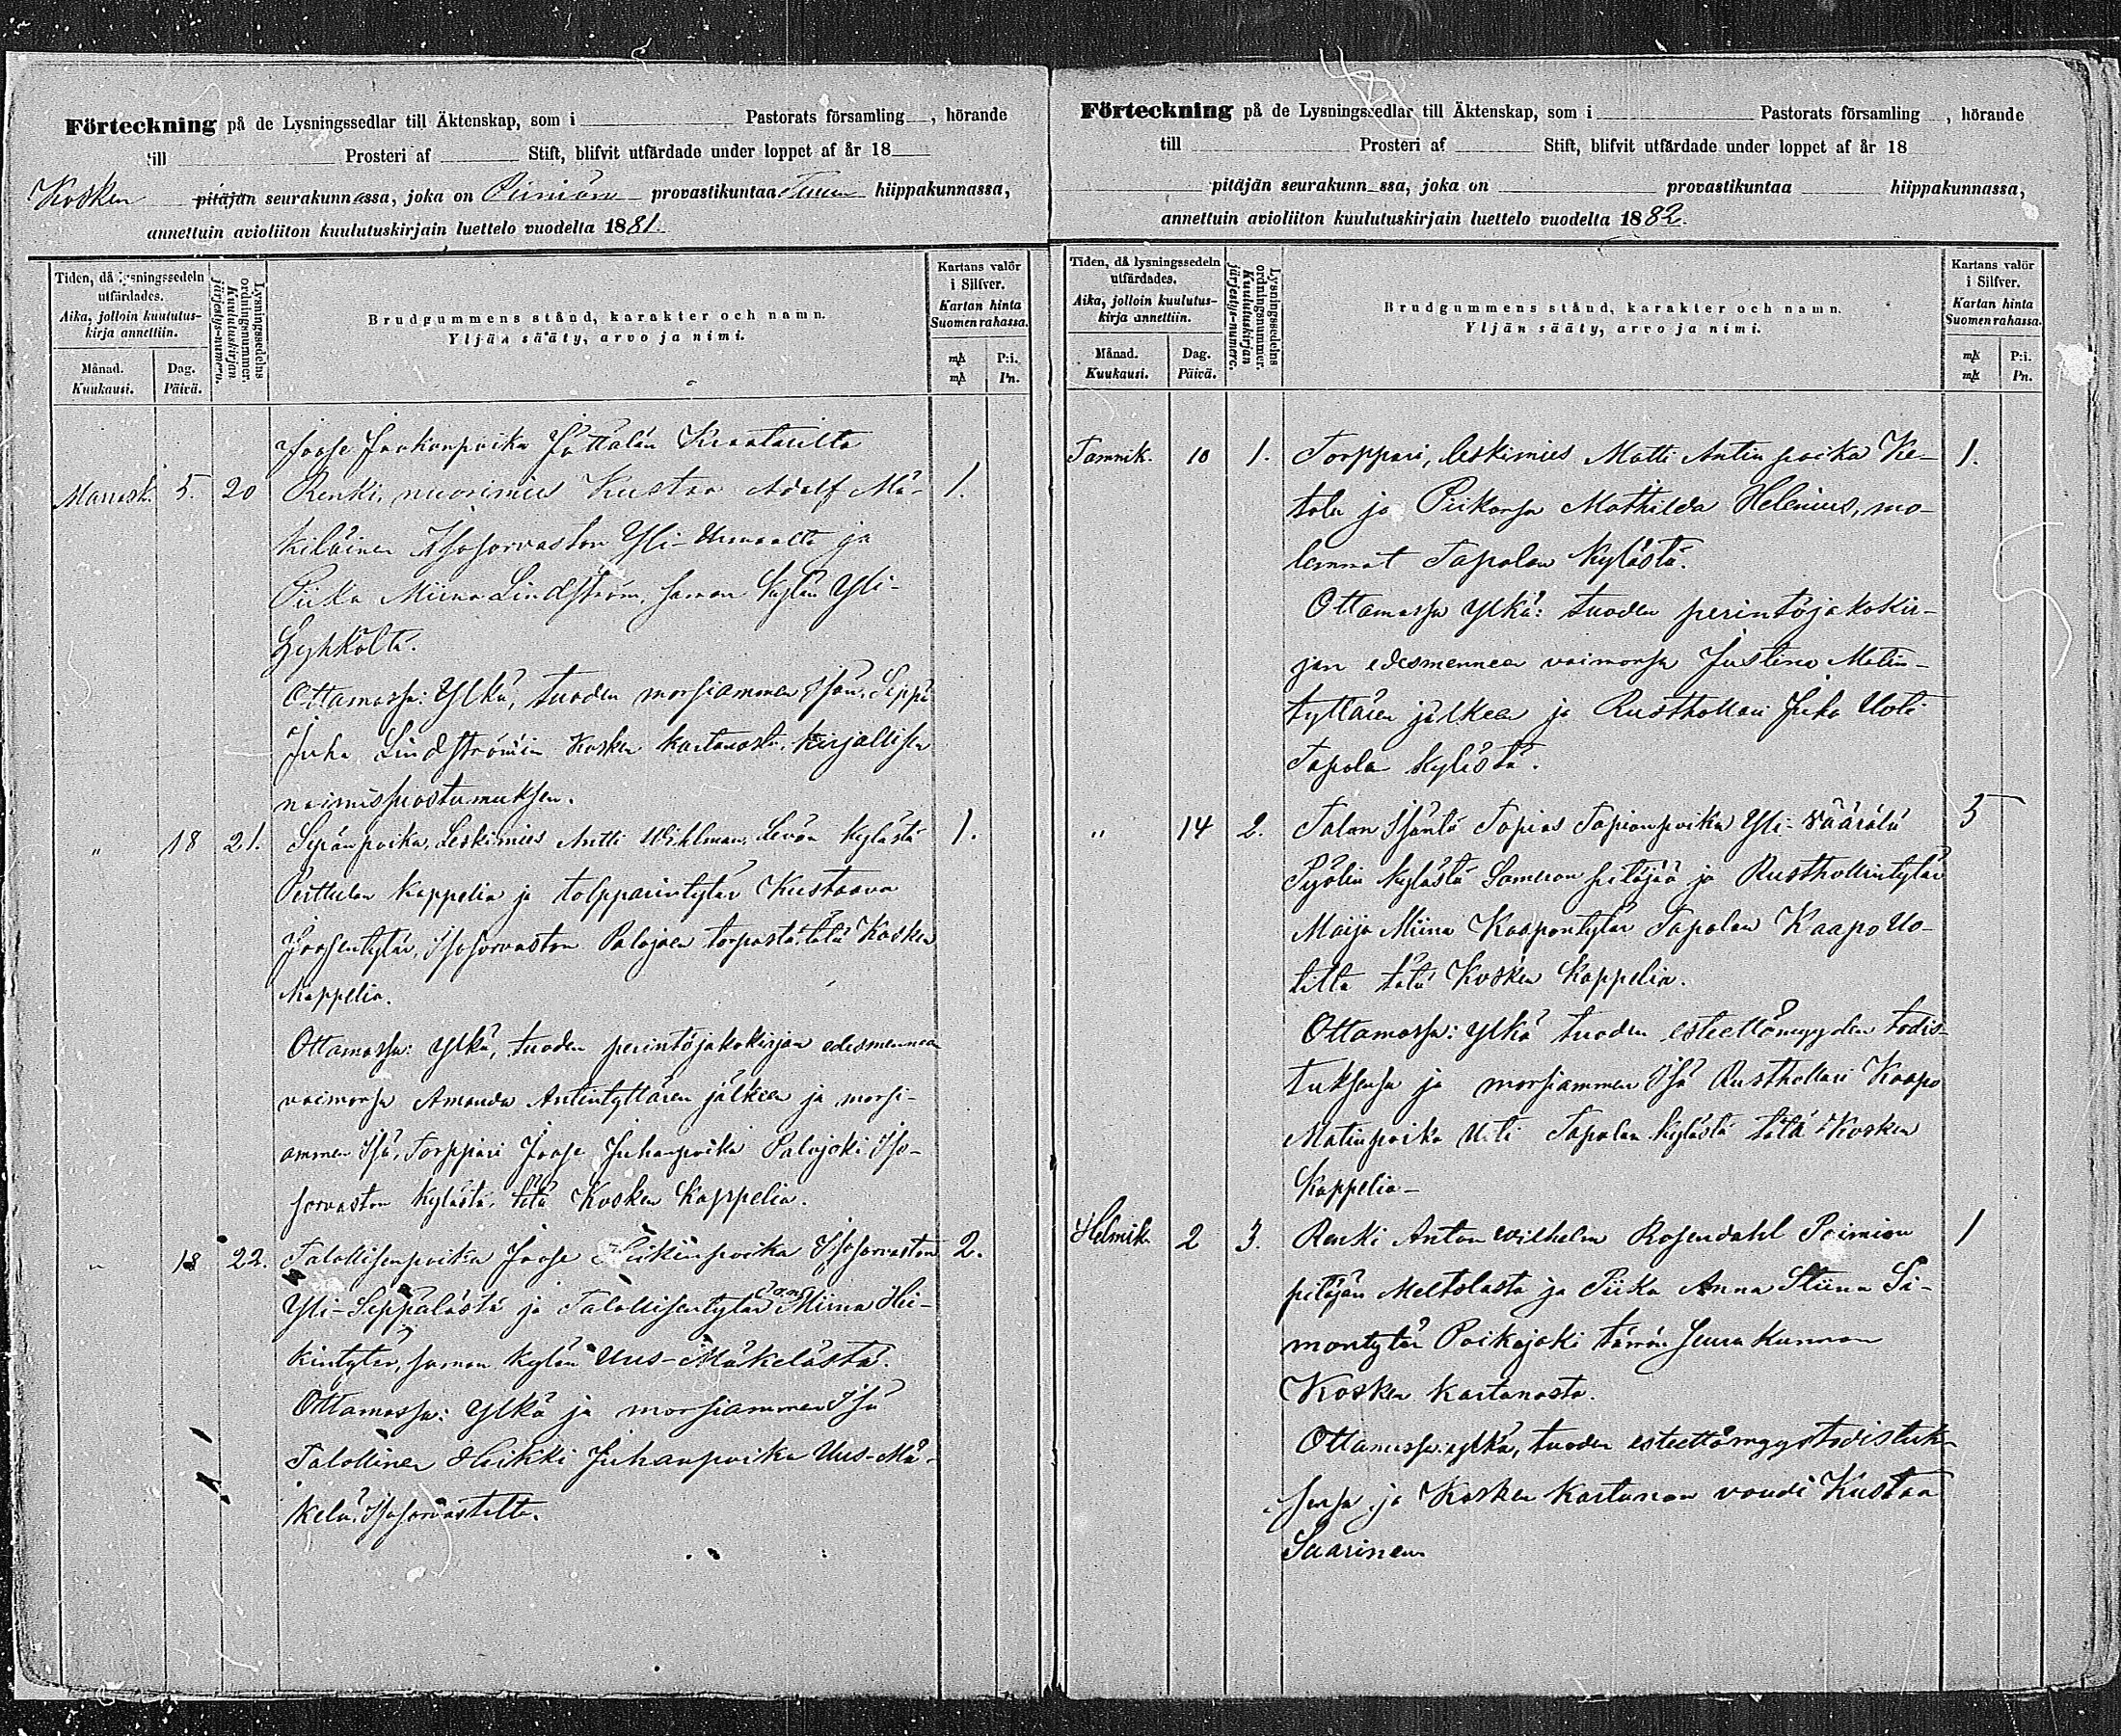 Förteckning på de Lysningssedlar till Äktenskap, som i Pastorats församling, hörande
till Prosteri af Stift, blifvit utfärdade under loppet af år 18
Kosken pitäjän seurakunnassa, joka on Piimiön provastikuntaa Turun hiippakunnassa,
annettuin avioliiton kuulutuskirjain luettelo vuodelta 1881.
Tiden, då lysningssedeln utfärdades.
Aika, jolloin kuulutus-
kirja annettiin.
Månad.
Kuukausi.
Dag.
Päivä.
Lysningssedelns
ordningsnummer.
Kuulutuskirjan
järjestys-numero.
Brudgummens stånd, karakter och namn.
Yljän sääty, arvo ja nimi.
Kartans valör
i Silfver.
Kartan hinta
Suomen rahassa.
mk P:i.
mk Pn.
Joose Jaakonpoika
Marrask. 5. 20 Renki, nuorimies Kustaa Adolf Mä- 1.
kiläinen Isosorvaston Yli- ja
Piika Miina Lindström, saman kylän Yli-
Lyhköltä.
Ottamassa: Ylkä, tuoden morsiammen Isän, Seppä
Juha Lindströmin Kosken kartanosta, kirjallisen
naimissuostumuksen.
" 18 21. Sepänpoika, Leskimies Antti Wihlman, Levän kylästä 1.
Perttulan kappelia ja tolpparintytär Kustaava
Joosentytär, Isosorvaston Palojoen torpasta, tätä Kosken
kappelia.
Ottamassa: Ylkä, tuoden perintöjakokirjan edesmennen
vaimonsa Amanda Antintyttären jälkeen ja morsi-
ammen Isä, Torppari Joose Juhanpoika Palojoki Iso-
sorvaston kylästä, tätä Kosken kappelia.
" 18 22. Talollisenpoika Joose Heikinpoika Isosorvaston 2.
Yli-Seppälästä ja Talollisentytär Miina Hei-
kintytär, saman kylän Uus-Mäkelästä.
Ottamassa: Ylkä ja morsiammen Isä
Talollinen Heikki Juhanpoika Uus-Mä-
kelä, Isosorvastolta.
Förteckning på de Lysningssedlar till Äktenskap, som i Pastorats församling, hörande
till Prosteri af Stift, blifvit utfärdade under loppet af år 18
pitäjän seurakunn ssa, joka on provastikuntaa hiippakunnassa,
annettuin avioliiton kuulutuskirjain luettelo vuodelta 1882.
Tiden, då lysningssedeln
utfärdades.
Aika, jolloin kuulutus-
kirja annettiin.
Månad.
Kuukausi.
Dag.
Päivä.
Lysningssedelns
ordningsnummer.
Kuulutuskirjan
järjestys-numero.
Brudgummens stånd, karakter och namn.
Yljän sääty, arvo ja nimi.
Kartans valör
i Silfver.
Kartan hinta
Suomen rahassa.
mk P:i.
mk Pn.
Tammik. 10 1. Torppari, leskimies Matti Antin poika Ke- 1.
tola ja Piikansa Mathilda Helenius, mo-
lemmat Tapolan kylästä.
Ottamassa Ylkä: tuoden perintöjakokir-
jan edesmennen vaimonsa Justina Matin-
tyttären jälkeen ja Rusthollari Juha Uoti
Tapolan kylästä.
" 14 2. Talon Isäntä Topias Topianpoika Yli-Väärälä 5
Pyölin kylästä Someron pitäjää ja Rusthollintytär
Maija Miina Kaapontytär Tapolan Kaapo Uo-
tilta tätä Kosken kappelia.
Ottamassa: Ylkä tuoden esteettömyyden todis-
tuksensa ja morsiammen Isä Rusthollari Kaapo
Matinpoika Uoti Tapolan kylästä tätä Kosken
kappelia-
Helmik. 2 3. Renki Anton Wilhelm Rosendahl Poimion 1
pitäjän Meltolasta ja Piika Anna Stiina Si-
montytär Poikajoki tämän seurakunnan
Kosken kartanosta.
Ottamassa: ylkä, tuoden esteettömyystodistuk-
sensa ja Kosken kartanon voudi Kustaa
Saarinen